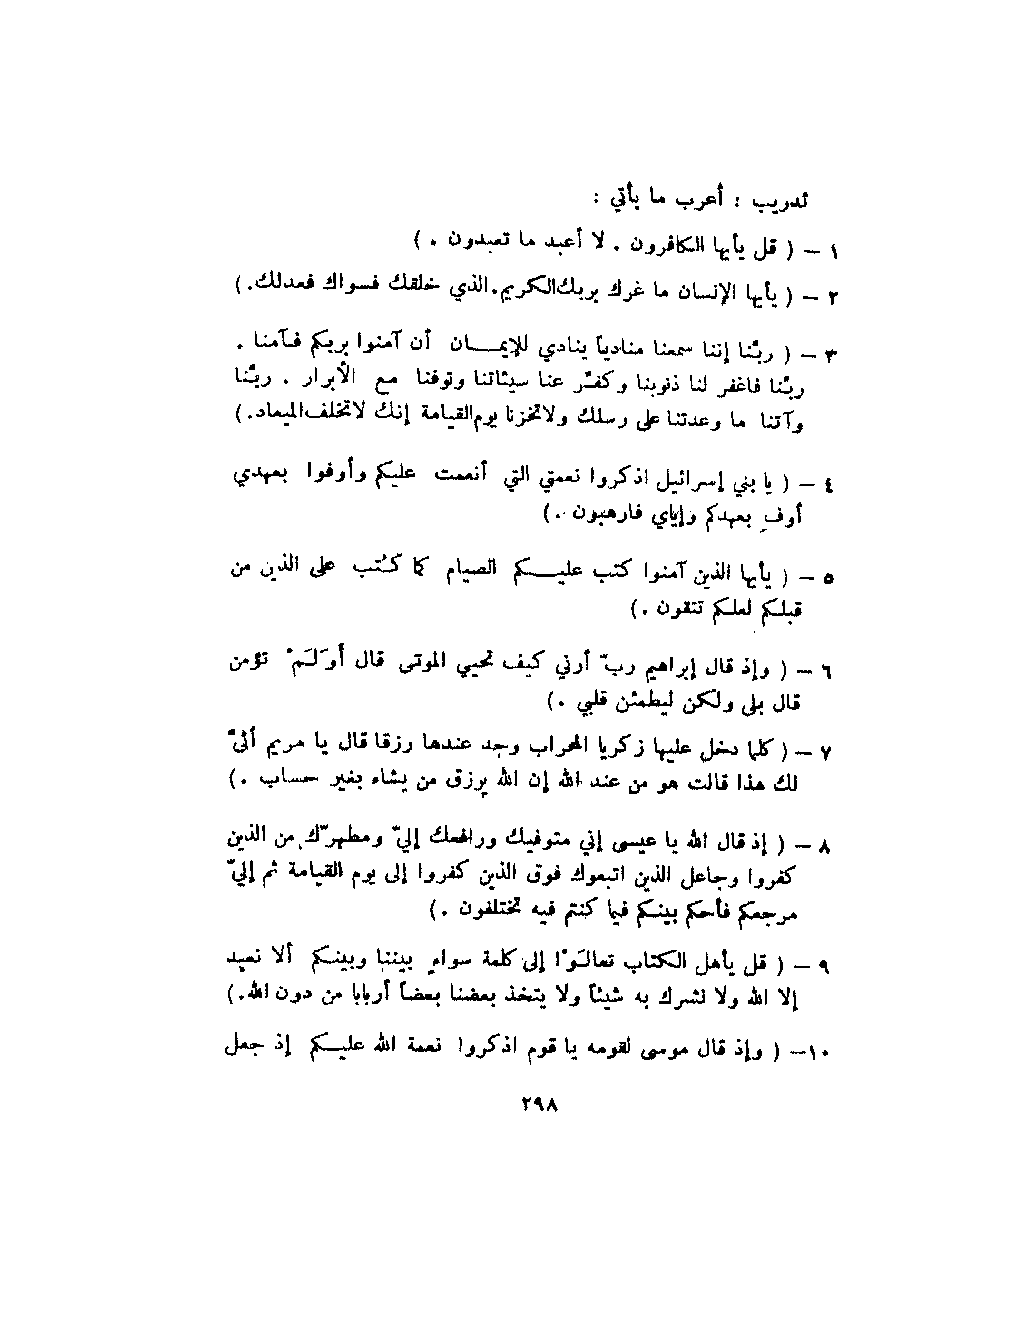 تدريب : أعرب ما يأتي :
١ – ( قل يأيها الكافرون . لا أعبد ما تعبدون . )
٢ – ( يأيها الإنسان ما غرك بربك الكريم. الذي خلقك فسواك فعدلك. )
٣ – ( ربَّنا إننا سمعنا منادياً ينادي للإيمــان أن آمنوا بربكم فـآمنا .
ربَّنا فاغفر لنا ذنوبنا وكفـِّر عنا سيئاتنا وتوفنا مع الأبرار . ربَّنا
وآتنا ما وعدتنا على رسلك ولا تخزنا يوم القيامة إنك لا تخلف الميعاد. )
٤ – ( يا بني إسرائيل اذكروا نعمتي التي أنعمت عليكم وأوفوا بعهدي
أوفِ بعهدكم وإياي فارهبون . )
٥ – ( يأيها الذين آمنوا كتب عليــكم الصيام كما كـُتب على الذين من
قبلـكم لعلـكم تتقون . )
٦ – ( وإذ قال إبراهيم ربِّ أرني كيف تحيي الموتى قال أوَلـَمْ تؤمن
قال بلى ولكن ليطمئن قلبي . )
٧ – ( كلما دخل عليها زكريا المحراب وجد عندها رزقا قال يا مريم أنَّى
لك هذا قالت هو من عند الله إن الله يرزق من يشاء بغير حساب . )
٨ – ( إذ قال الله يا عيسى إني متوفيك ورافعك إليّ ومطهرّك من الذين
كفروا وجاعل الذين اتبعوك فوق الذين كفروا إلى يوم القيامة ثم إليّ
مرجعكم فأحكم بينـكم فيما كنتم فيه تختلفون . )
٩ – ( قل يأهل الـكتاب تعالـَوْا إلى كلمة سواءٍ بيننا وبينـكم ألا نعبد
إلا الله ولا نشرك به شيئاً ولا يتخذ بعضنا بعضاً أربابا من دون الله. )
١٠– ( وإذ قال موسى لقومه يا قوم اذكروا نعمة الله عليــكم إذ جعل
٢٩٨